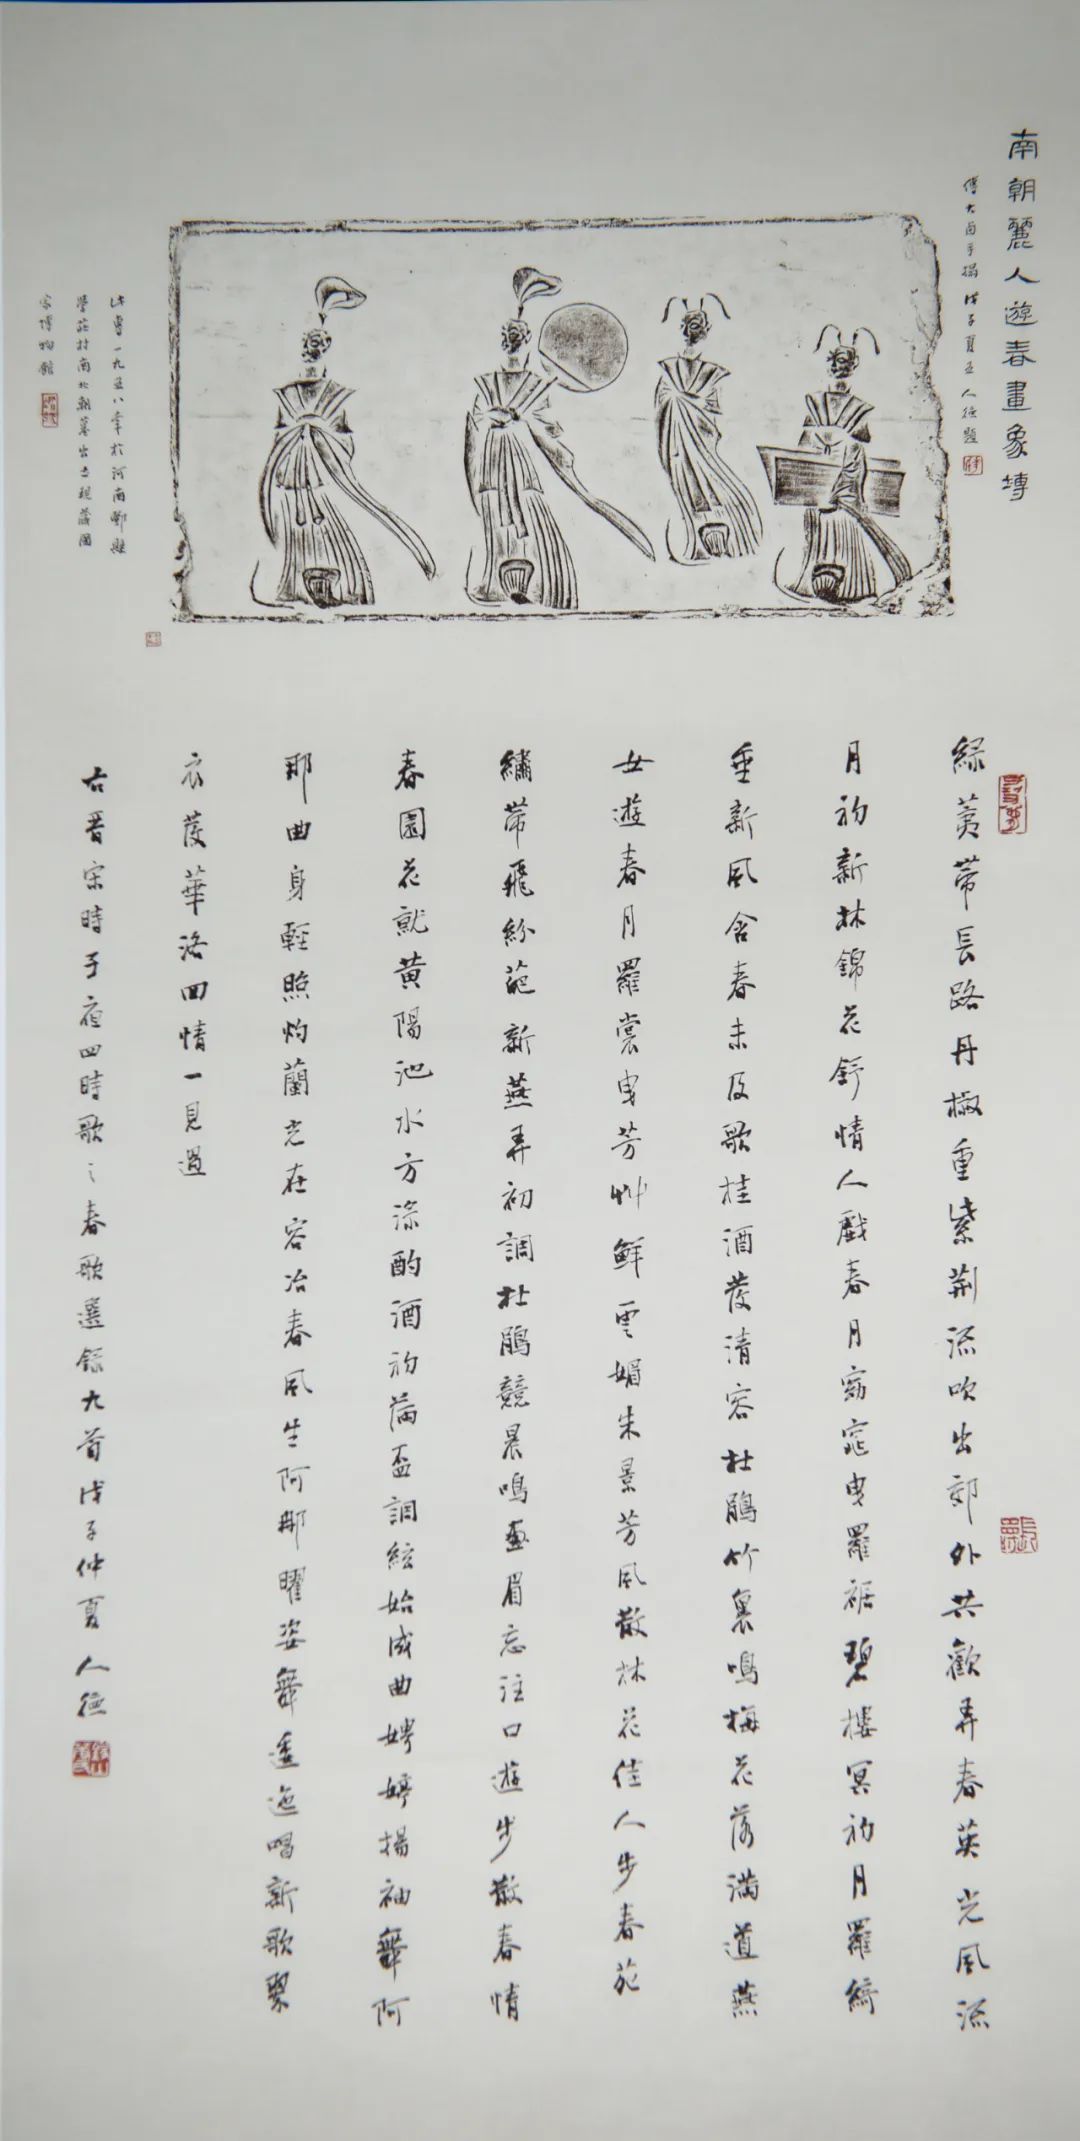 南朝麗人遊春畫象塼
傅大卣手搨戊子夏五人德題
此專一九五八年於河南鄧縣
學莊村南北朝墓出土現藏國
家博物館
綠荑帶長路丹椒重紫荊流吹出郊外共歡弄春英光風流
月初新林錦花舒情人戲春月窈窕曳羅裾碧樓冥初月羅綺
垂新風含春未及歌桂酒發清容杜鵑竹裏鳴梅花落滿道燕
女遊春月羅裳曳芳艸鮮雲媚朱景芳風散林花佳人步春苑
繡帶飛紛葩新燕弄初調杜鵑競晨鳴畫眉忘注口遊步散春情
春園花就黃陽池水方淥酌酒初滿盃調絃始成曲娉婷揚袖舞阿
那曲身輕照灼蘭光在容冶春風生阿那曜姿舞逶迤唱新歌翠
衣發華洛回情一見過
右晉宋時子夜四時歌之春歌選錄九首戊子仲夏人德